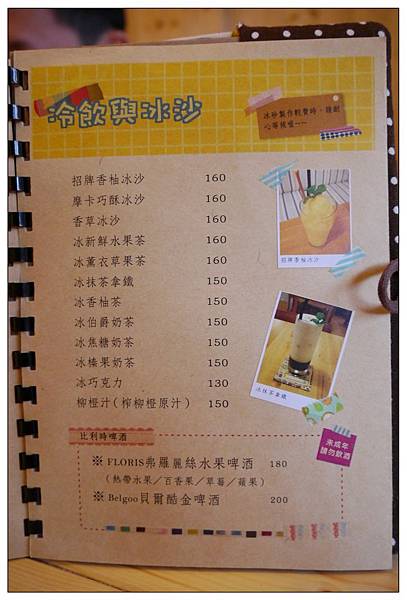 冷飲與冰沙
冰砂製作較費時，請耐
心等候喔~~
招牌香柚冰沙 160
摩卡巧酥冰沙 160
香草冰沙 160
冰新鮮水果茶 160
冰薰衣草果茶 160
冰抹茶拿鐵 150
冰香柚茶 150
冰伯爵奶茶 150
冰焦糖奶茶 150
冰榛果奶茶 150
冰巧克力 130
柳橙汁(榨柳橙原汁) 150
招牌香柚冰沙
冰抹茶拿鐵
比利時啤酒
未成年
請勿飲酒
※ FLORIS弗羅麗絲水果啤酒 180
(熱帶水果／百香果／草莓／蘋果)
※ Belgoo貝爾酷金啤酒 200